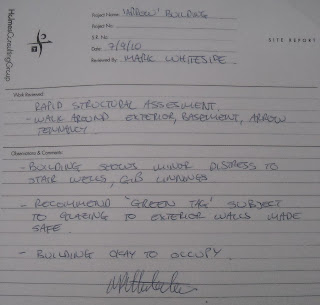 HolmesConsultingGroup
SITE REPORT
Project Name: 'ARROW' BUILDING
Project No.:
S.R. No.:
Date: 7/9/10
Reviewed By: MARK WHITESIDE.
Work Reviewed:
RAPID STRUCTURAL ASSESSMENT.
- WALK AROUND EXTERIOR, BASEMENT, ARROW
TENANCY.
Observations & Comments:
- BUILDING SHOWS MINOR DISTRESS TO
STAIR WELLS, GIB LININGS
- RECOMMEND 'GREEN TAG' SUBJECT
TO GLAZING TO EXTERIOR WALLS MADE
SAFE.
- BUILDING OKAY TO OCCUPY.